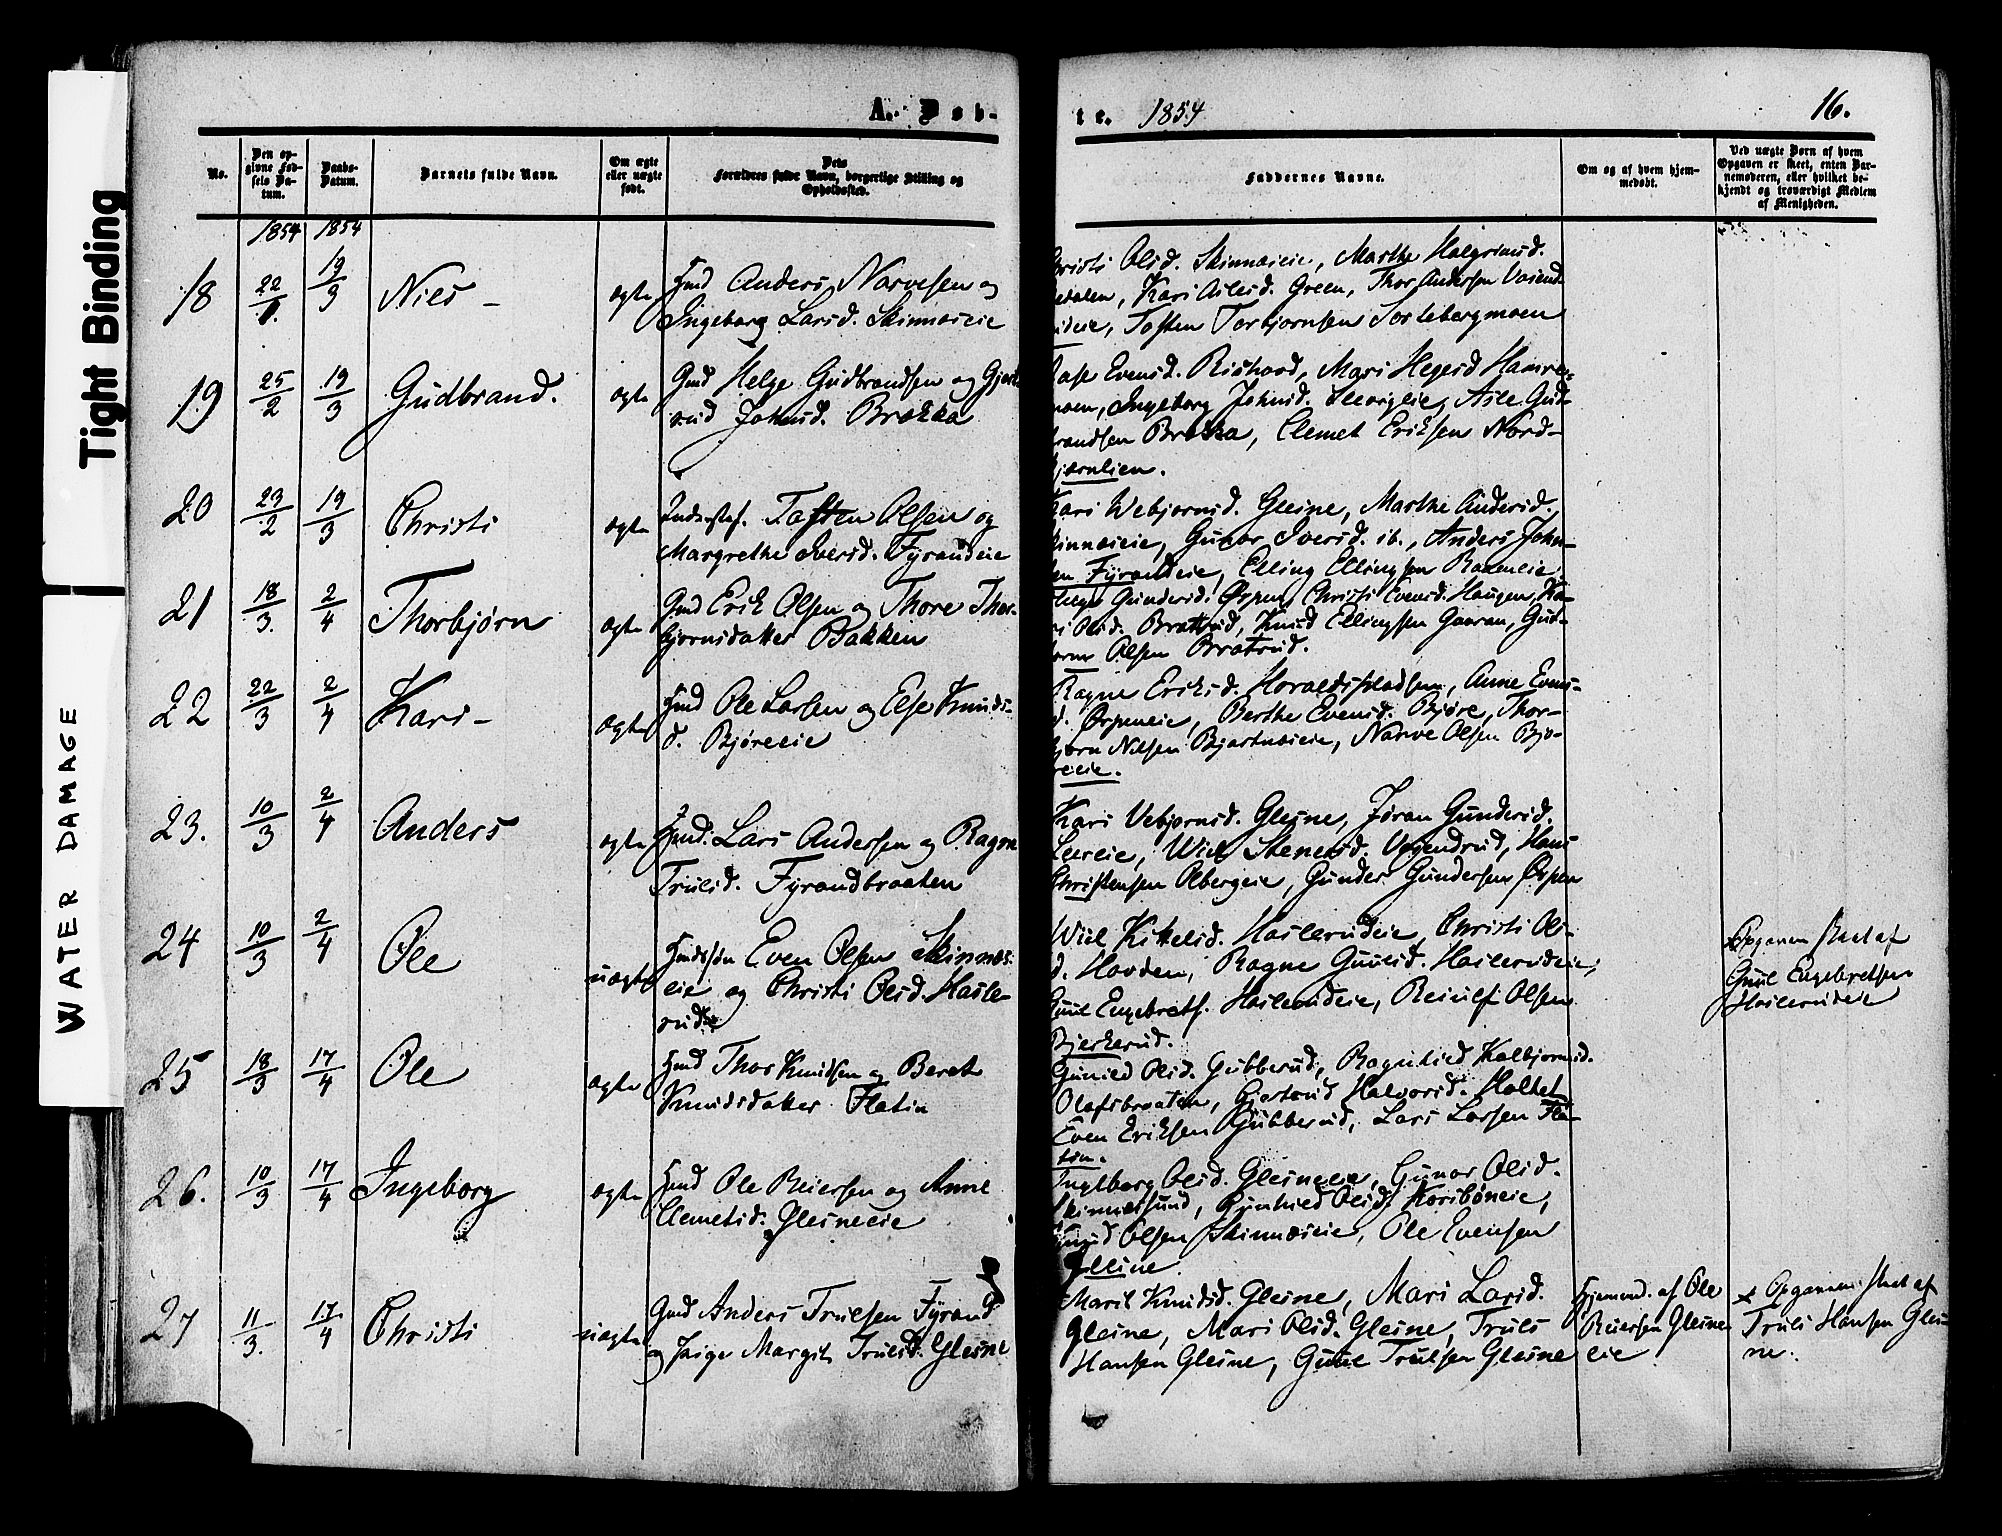 Tight Binding
WATER DAMAGE
A. Døb-
te. 1854
16.
No.
Den op-
givne Fød-
sels Da-
tum.
Daabs-
Datum.
Barnets fulde Navn.
Om ægte
eller uægte
født.
Dets
Forældres fulde Navn, borgerlige Stilling og
Opholdssted.
Faddernes Navne.
Om og af hvem hjem-
medøbt.
Ved uægte Børn af hvem
Opgaven er skeet, enten Bar-
nemoderen, eller hvilket be-
kjendt og troværdigt Medlem
af Menigheden.
1854 1854
18 22/1. 19/3 Niels – ægte Hmd Anders Narvesen og
Ingeborg Larsd. Skinnæseie
Olsd. Skinnæseie, Marthe Halgrimsd.
Kari Asles d. Green, Thor Andersen
Tosten Torbjørnsen Sortebergmoen
19 25/2 19/3 Gudbrand. ægte Gmd Helge Gudbrandsen og Gjert-
rud Johnsd. Brækka
Evensd. Mari Heges d Hamre-
moen, Ingeborg Johnsd. Asle Gud-
brandsen Brækka, Clemet Eriksen Nord-
bjørnlien.
20 23/2 19/3 Christi ægte Tosten Olsen og
Margrethe Iversd. Fyrandeie
Kari Webjørnsd. Glesne, Marthe Andersd.
Skinnæseie, Gunor Iversd. ib., Anders John-
sen Fyrandeie, Elling Ellingsen
21 18/3. 2/4 Thorbjørn ægte Gmd Erik Olsen og Thore Thor-
bjørnsdatter Bakken
Helge Gundersd. Ørpen, Christi Evensd. Haugen, Ka-
ri Olsd. Brattrud, Knud Ellingsen Gaaran, Gud-
Olsen Bratrud.
22 22/3 2/4 Kari – ægte Hmd Ole Larsen og Else Knuds-
d. Bjøreeie
Ragne Eriksd. Anne Evens-
d. Ørpeneie, Berthe Evensd. Bjøre, Thor-
bjørn Nilsen Narve Olsen Bjø-
reeie.
23. 10/3 2/4 Anders ægte Hmd. Lars Andersen og Ragne
Trulsd. Fyrandbraaten
Kari Vebjørnsd. Glesne, Jøran Gundersd.
Leereie, Wiel Stenersd. Hans
Christensen Olbergeie, Gunder Gundersen Ørpen
24 10/3 2/4 Ole uægte Even Olsen Skinnæs-
eie og Christi Olsd. Hasle-
rud
Wiel Kittelsd. Haslerudeie, Christi Ols-
d. Hovden, Ragne Guulsd. Haslerudeie,
Guul Engebrets. Haslerudeie, Reinulf Olsen
Bjerkerud.
Opgaven skeet af
Guul Engebretsen
Haslerudeie
25 18/3 17/4 Ole ægte Hmd Thor Knudsen og Beret
Knudsdatter Flatin
Gunild Olsd. Gubberud, Ragnhild Kolbjørnsd.
Olafsbraaten, Gjertrud Halvorsd. Holtet
Even Eriksen Gubberud, Lars Larsen Fla-
tin.
26. 10/3 17/4 Ingeborg ægte Hmd Ole Reiersen og Anne
Clemetsd. Glesneeie
Ingeborg Olsd. Glesneeie, Gunor Olsd.
Gunhild Olsd.
Knud Olsen Skinnæseie, Ole Evensen
Glesne
27 11/3. 17/4 Christi uægte Gmd Anders Trulsen Fyrand
og Pige Margit Trulsd. Glesne
Marit Knudsd. Glesne, Mari Larsd.
Glesne, Mari Olsd. Glesne, Truls
Hansen Glesne, Guul Trulsen Glesne
Hjemmed. af Ole
Reiersen Glesne-
eie
Opgaven skeet af
Truls Hansen Gles-
ne.